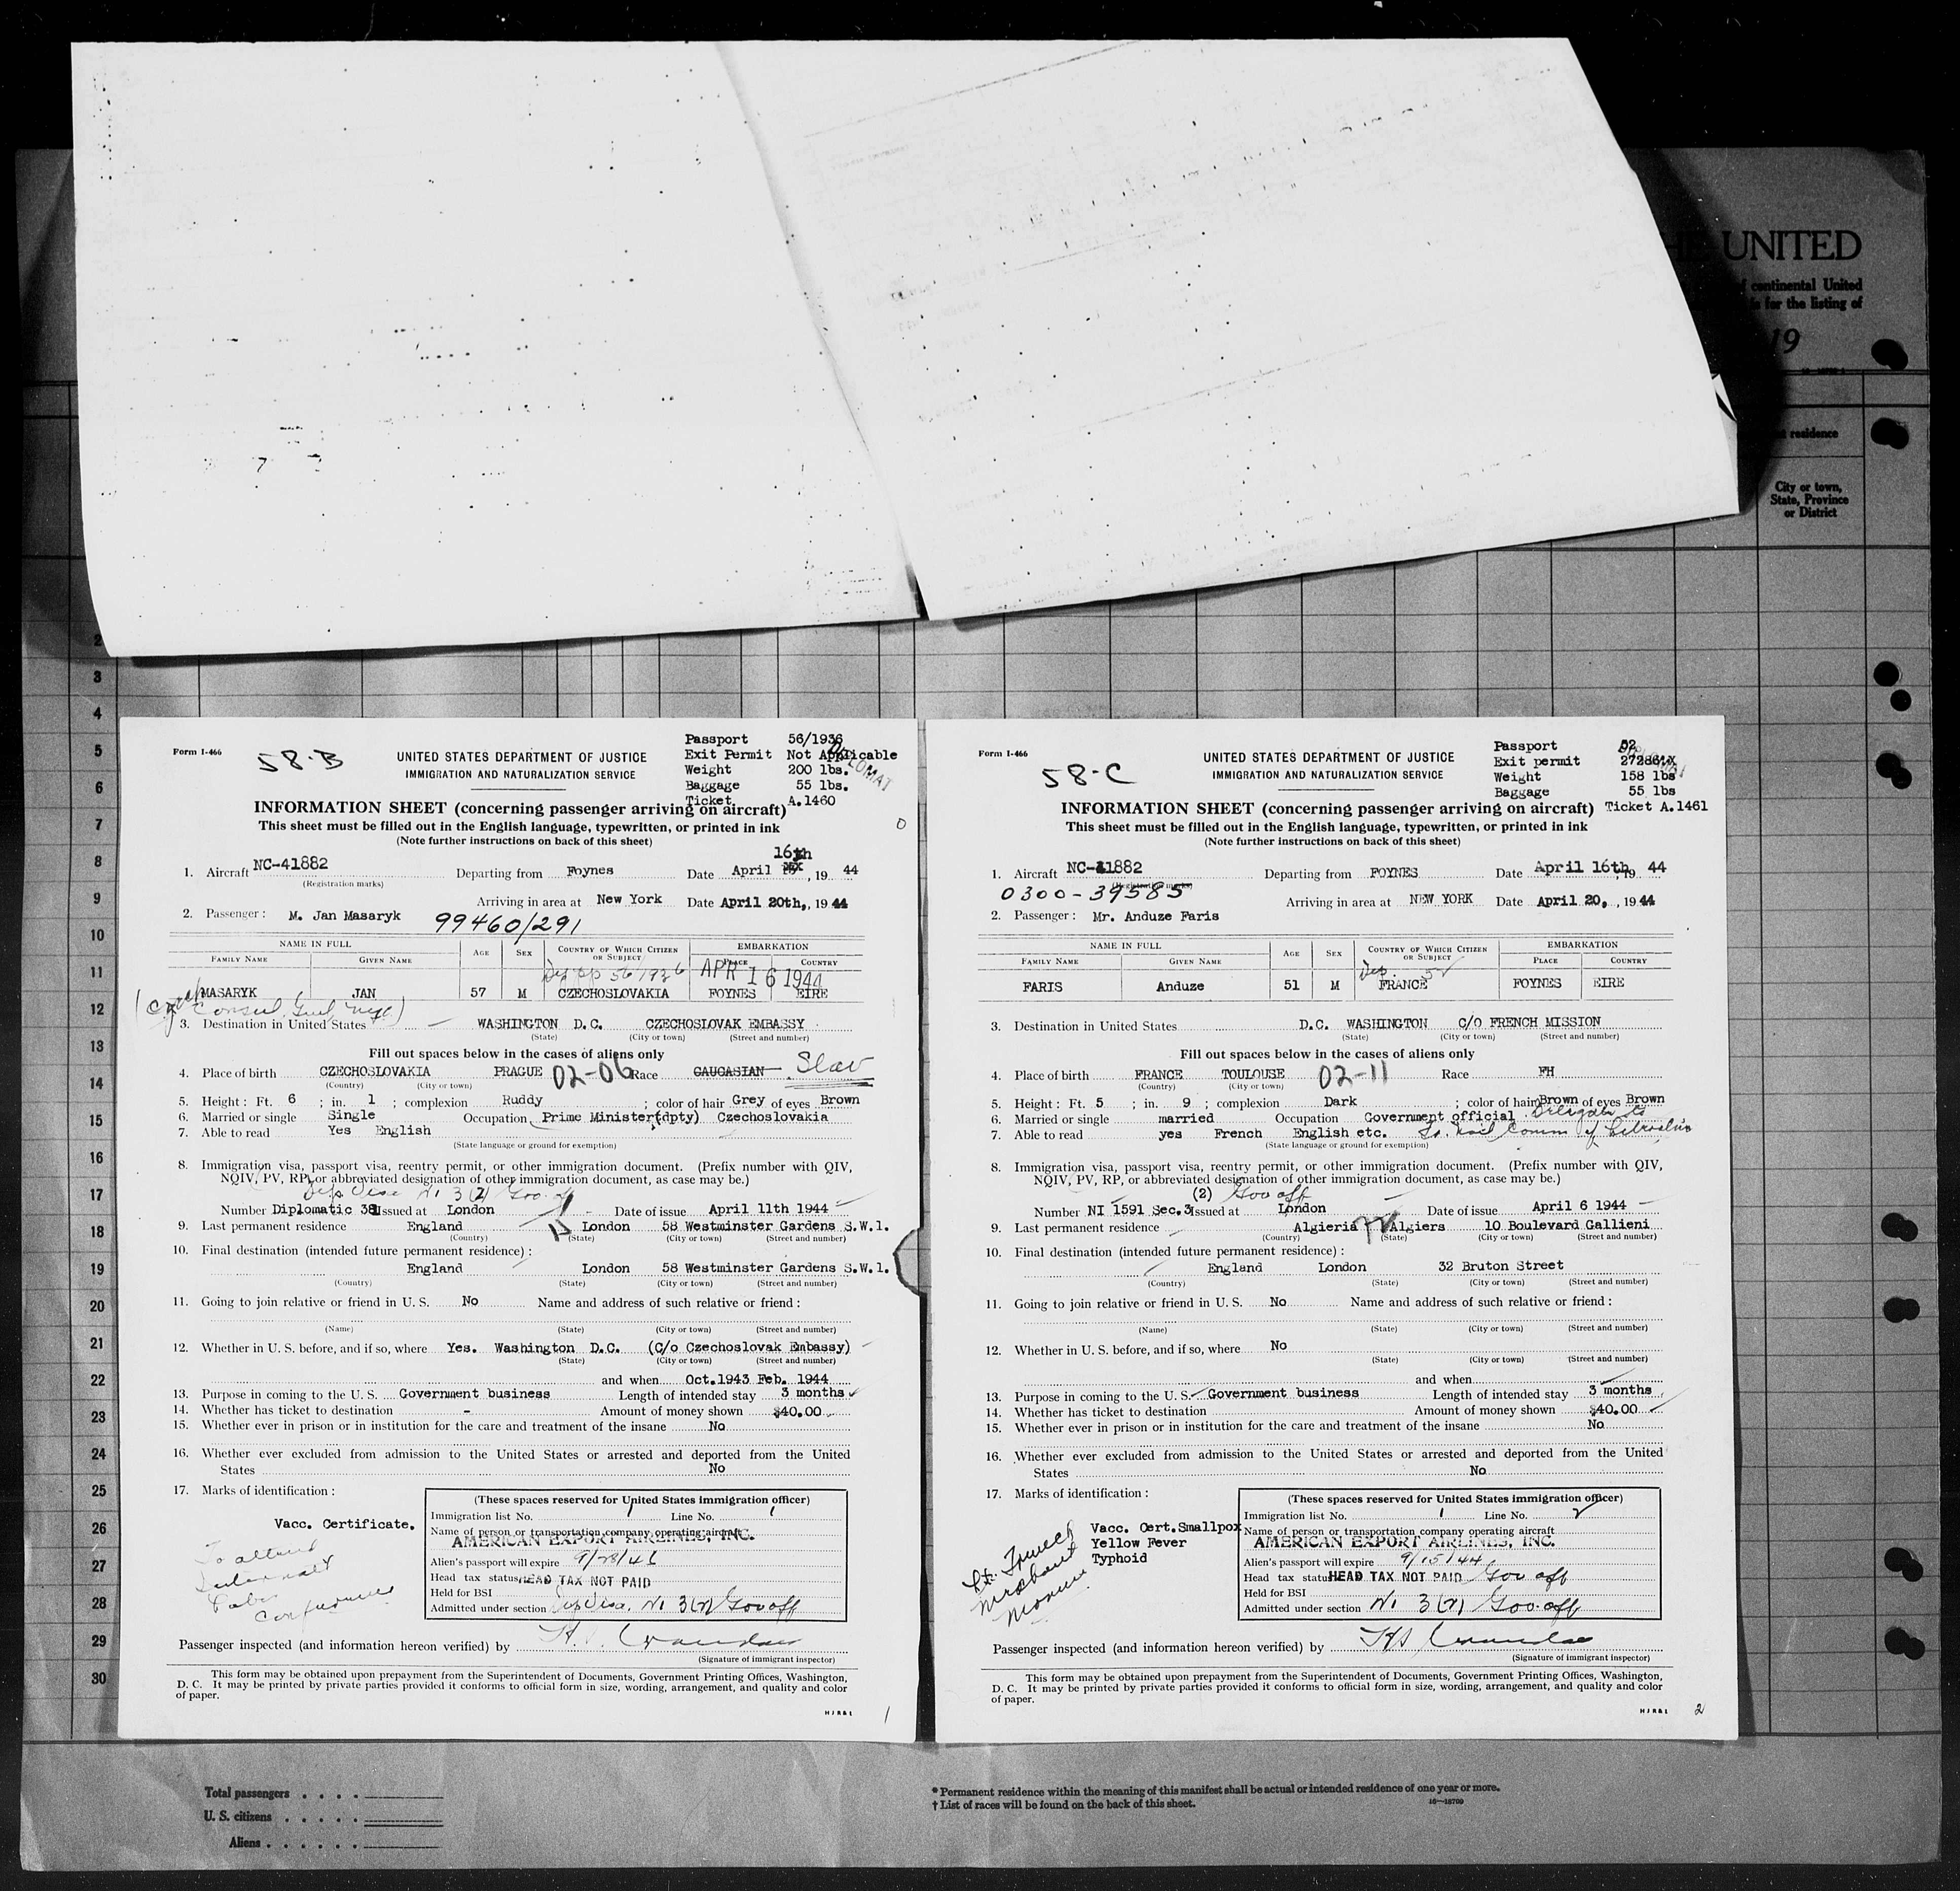 HE UNITED
of continental United
is for the listing of
19
residence
City or town,
State, Province
or District
2
3
4
5
6
7
8
9
10
11
12
13
14
15
16
17
18
19
20
21
22
23
24
25
26
27
28
29
30
Form I-466
58-B
UNITED STATES DEPARTMENT OF JUSTICE
IMMIGRATION AND NATURALIZATION SERVICE
Passport 56/1936
Exit Permit Not Applicable
Weight 200 lbs.
Baggage 55 lbs.
Ticket A.1460
DIPLOMAT
INFORMATION SHEET (concerning passenger arriving on aircraft)
This sheet must be filled out in the English language, typewritten, or printed in ink
(Note further instructions on back of this sheet)
0
1. Aircraft NC-41882 Departing from Foynes Date April 16th, 19 44
(Registration marks)
Arriving in area at New York Date April 20th, 19 44
2. Passenger: M. Jan Masaryk 99460/291
NAME IN FULL AGE SEX COUNTRY OF WHICH CITIZEN OR SUBJECT EMBARKATION
FAMILY NAME GIVEN NAME PLACE COUNTRY
Dip pp 56/1936 APR 16 1944
MASARYK JAN 57 M CZECHOSLOVAKIA FOYNES EIRE
(Czech Consul. Genl, NYC)
3. Destination in United States WASHINGTON D.C. CZECHOSLOVAK EMBASSY
(State) (City or town) (Street and number)
Fill out spaces below in the cases of aliens only
4. Place of birth CZECHOSLOVAKIA PRAGUE 02-06 Race CAUCASIAN Slav
(Country) (City or town)
5. Height: Ft. 6 ; in. 1 ; complexion Ruddy ; color of hair Grey of eyes Brown
6. Married or single Single Occupation Prime Minister(dpty) Czechoslovakia
7. Able to read Yes English
(State language or ground for exemption)
8. Immigration visa, passport visa, reentry permit, or other immigration document. (Prefix number with QIV,
NQIV, PV, RP, or abbreviated designation of other immigration document, as case may be.)
Dip Visa N1 3(2) Gov. off
Number Diplomatic 38 Issued at London Date of issue April 11th 1944
9. Last permanent residence England London 58 Westminster Gardens S.W.1.
(Country) (State) (City or town) (Street and number)
10. Final destination (intended future permanent residence):
England London 58 Westminster Gardens S.W.1.
(Country) (State) (City or town) (Street and number)
11. Going to join relative or friend in U. S. No Name and address of such relative or friend:
(Name) (State) (City or town) (Street and number)
12. Whether in U. S. before, and if so, where Yes. Washington D.C. (C/o Czechoslovak Embassy)
(State) (City or town) (Street and number)
and when Oct.1943 Feb. 1944
13. Purpose in coming to the U. S. Government business Length of intended stay 3 months
14. Whether has ticket to destination - Amount of money shown $40.00
15. Whether ever in prison or in institution for the care and treatment of the insane No
16. Whether ever excluded from admission to the United States or arrested and deported from the United
States No
17. Marks of identification:
Vacc. Certificate.
To attend
Internatl
Labor
Conference
(These spaces reserved for United States immigration officer)
Immigration list No. 1 Line No. 1
Name of person or transportation company operating aircraft
AMERICAN EXPORT AIRLINES, INC.
Alien's passport will expire 9/28/46
Head tax status HEAD TAX NOT PAID
Held for BSI
Admitted under section Dip Visa. N1 3(2) Gov off
Passenger inspected (and information hereon verified) by
(Signature of immigrant inspector)
This form may be obtained upon prepayment from the Superintendent of Documents, Government Printing Offices, Washington,
D. C. It may be printed by private parties provided it conforms to official form in size, wording, arrangement, and quality and color
of paper.
H J R & L
1
Form I-466
58-C
UNITED STATES DEPARTMENT OF JUSTICE
IMMIGRATION AND NATURALIZATION SERVICE
Passport 52
Exit permit
Weight 158 lbs
Baggage 55 lbs
Ticket A.1461
INFORMATION SHEET (concerning passenger arriving on aircraft)
This sheet must be filled out in the English language, typewritten, or printed in ink
(Note further instructions on back of this sheet)
1. Aircraft NC-41882 Departing from FOYNES Date April 16th, 19 44
(Registration marks)
0300-39585
Arriving in area at NEW YORK Date April 20, 19 44
2. Passenger: Mr. Anduze Faris
NAME IN FULL AGE SEX COUNTRY OF WHICH CITIZEN OR SUBJECT EMBARKATION
FAMILY NAME GIVEN NAME PLACE COUNTRY
Dip. 52
FARIS Anduze 51 M FRANCE FOYNES EIRE
3. Destination in United States D.C. WASHINGTON C/O FRENCH MISSION
(State) (City or town) (Street and number)
Fill out spaces below in the cases of aliens only
4. Place of birth FRANCE TOULOUSE 02-11 Race FH
(Country) (City or town)
5. Height: Ft. 5 ; in. 9 ; complexion Dark ; color of hair Brown of eyes Brown
6. Married or single married Occupation Government official Delegate to
7. Able to read yes French English etc. Comm of
(State language or ground for exemption)
8. Immigration visa, passport visa, reentry permit, or other immigration document. (Prefix number with QIV,
NQIV, PV, RP, or abbreviated designation of other immigration document, as case may be.)
(2) Gov off
Number NI 1591 Sec.3 Issued at London Date of issue April 6 1944
9. Last permanent residence Algieria Algiers 10 Boulevard Gallieni
(Country) (State) (City or town) (Street and number)
10. Final destination (intended future permanent residence):
England London 32 Bruton Street
(Country) (State) (City or town) (Street and number)
11. Going to join relative or friend in U. S. No Name and address of such relative or friend:
(Name) (State) (City or town) (Street and number)
12. Whether in U. S. before, and if so, where No
(State) (City or town) (Street and number)
and when
13. Purpose in coming to the U. S. Government business Length of intended stay 3 months
14. Whether has ticket to destination Amount of money shown $40.00
15. Whether ever in prison or in institution for the care and treatment of the insane No
16. Whether ever excluded from admission to the United States or arrested and deported from the United
States No
17. Marks of identification:
Vacc. Cert.Smallpox
Yellow Fever
Typhoid
(These spaces reserved for United States immigration officer)
Immigration list No. 1 Line No. 2
Name of person or transportation company operating aircraft
AMERICAN EXPORT AIRLINES, INC.
Alien's passport will expire 9/15/44
Head tax status HEAD TAX NOT PAID Gov off
Held for BSI
Admitted under section N1 3(2) Gov. off
Passenger inspected (and information hereon verified) by
(Signature of immigrant inspector)
This form may be obtained upon prepayment from the Superintendent of Documents, Government Printing Offices, Washington,
D. C. It may be printed by private parties provided it conforms to official form in size, wording, arrangement, and quality and color
of paper.
H J R & L
2
Total passengers . . . .
U. S. citizens . . . . .
Aliens . . . . . .
* Permanent residence within the meaning of this manifest shall be actual or intended residence of one year or more.
† List of races will be found on the back of this sheet.
16—18709